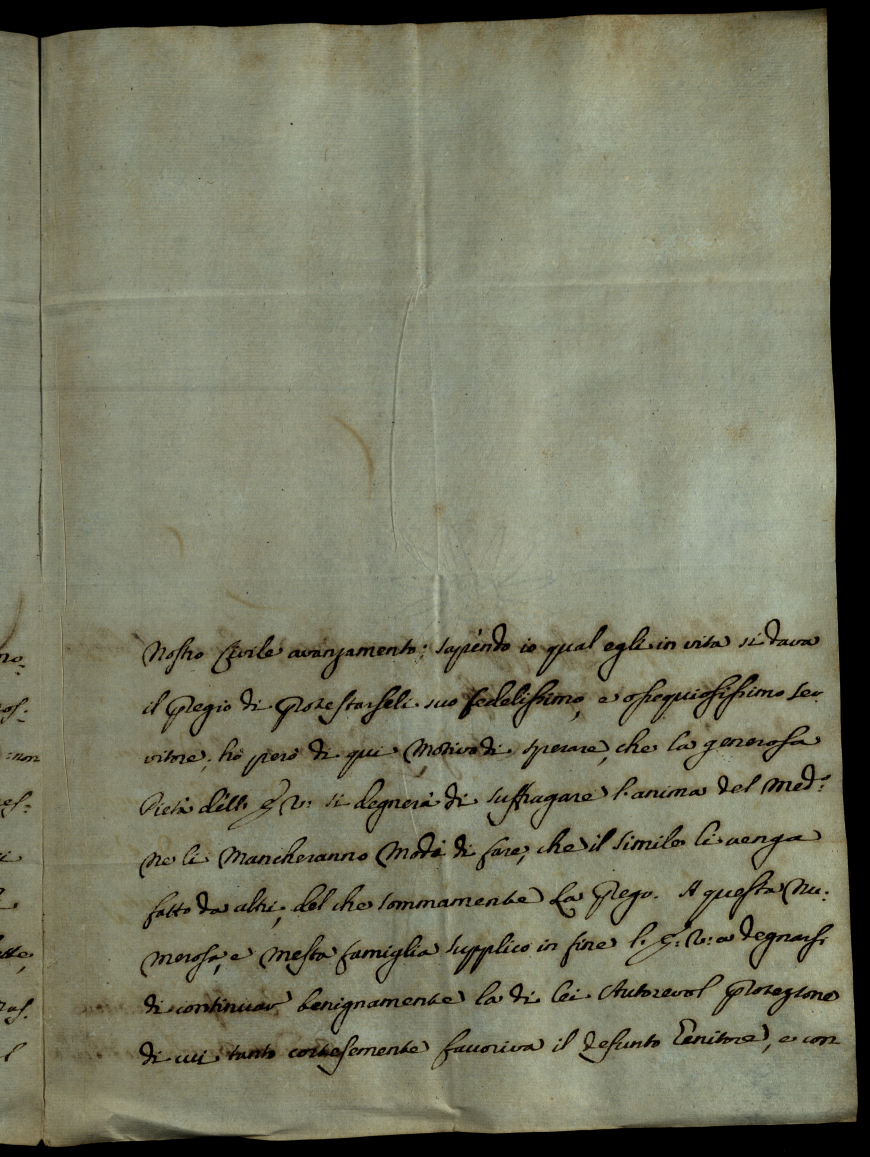 no:
os:
non
es:
i
tte,
as:
l
Nostro Civile avanzamento: sapendo io qual egli in vita si dava
il pregio di protestarseli suo fedelissimo, e ossequiosissimo ser
vitore, hò però di qui Motivo di sperare, che la generosa
Pietà dell' E: V: si degnerà di suffragare l'anima del Med:º
ne li Mancheranno Modi di fare, che il simile li venga
fatto da altri, del che sommamente La prego. A questa Nu:
merosa, e mesta famiglia supplico in fine l' E: V: a degnarsi
di continuar benignamente la di lei Autorevol protezione
di cui tanto cortesemente favoriva il defunto Genitore, e con